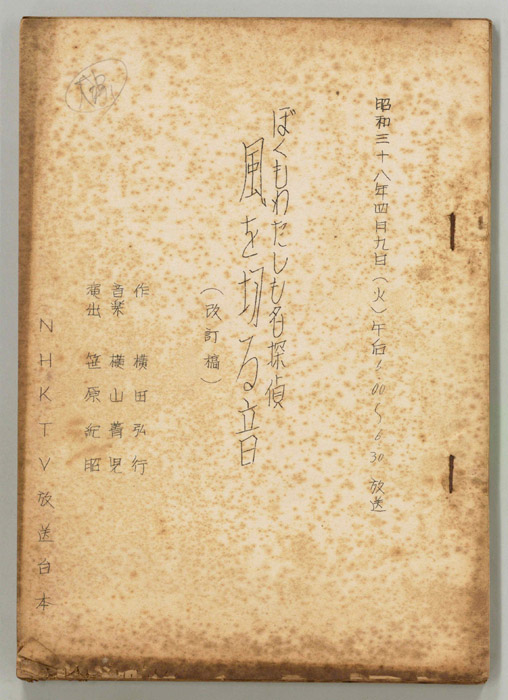 昭和三十八年四月九日(火)午后6.00〜6.30放送
ぼくもわたしも名探偵
風を切る音
(改訂稿)
作 横田弘行
音楽 横山菁児
演出 笹原紀昭
NHKTV放送台本